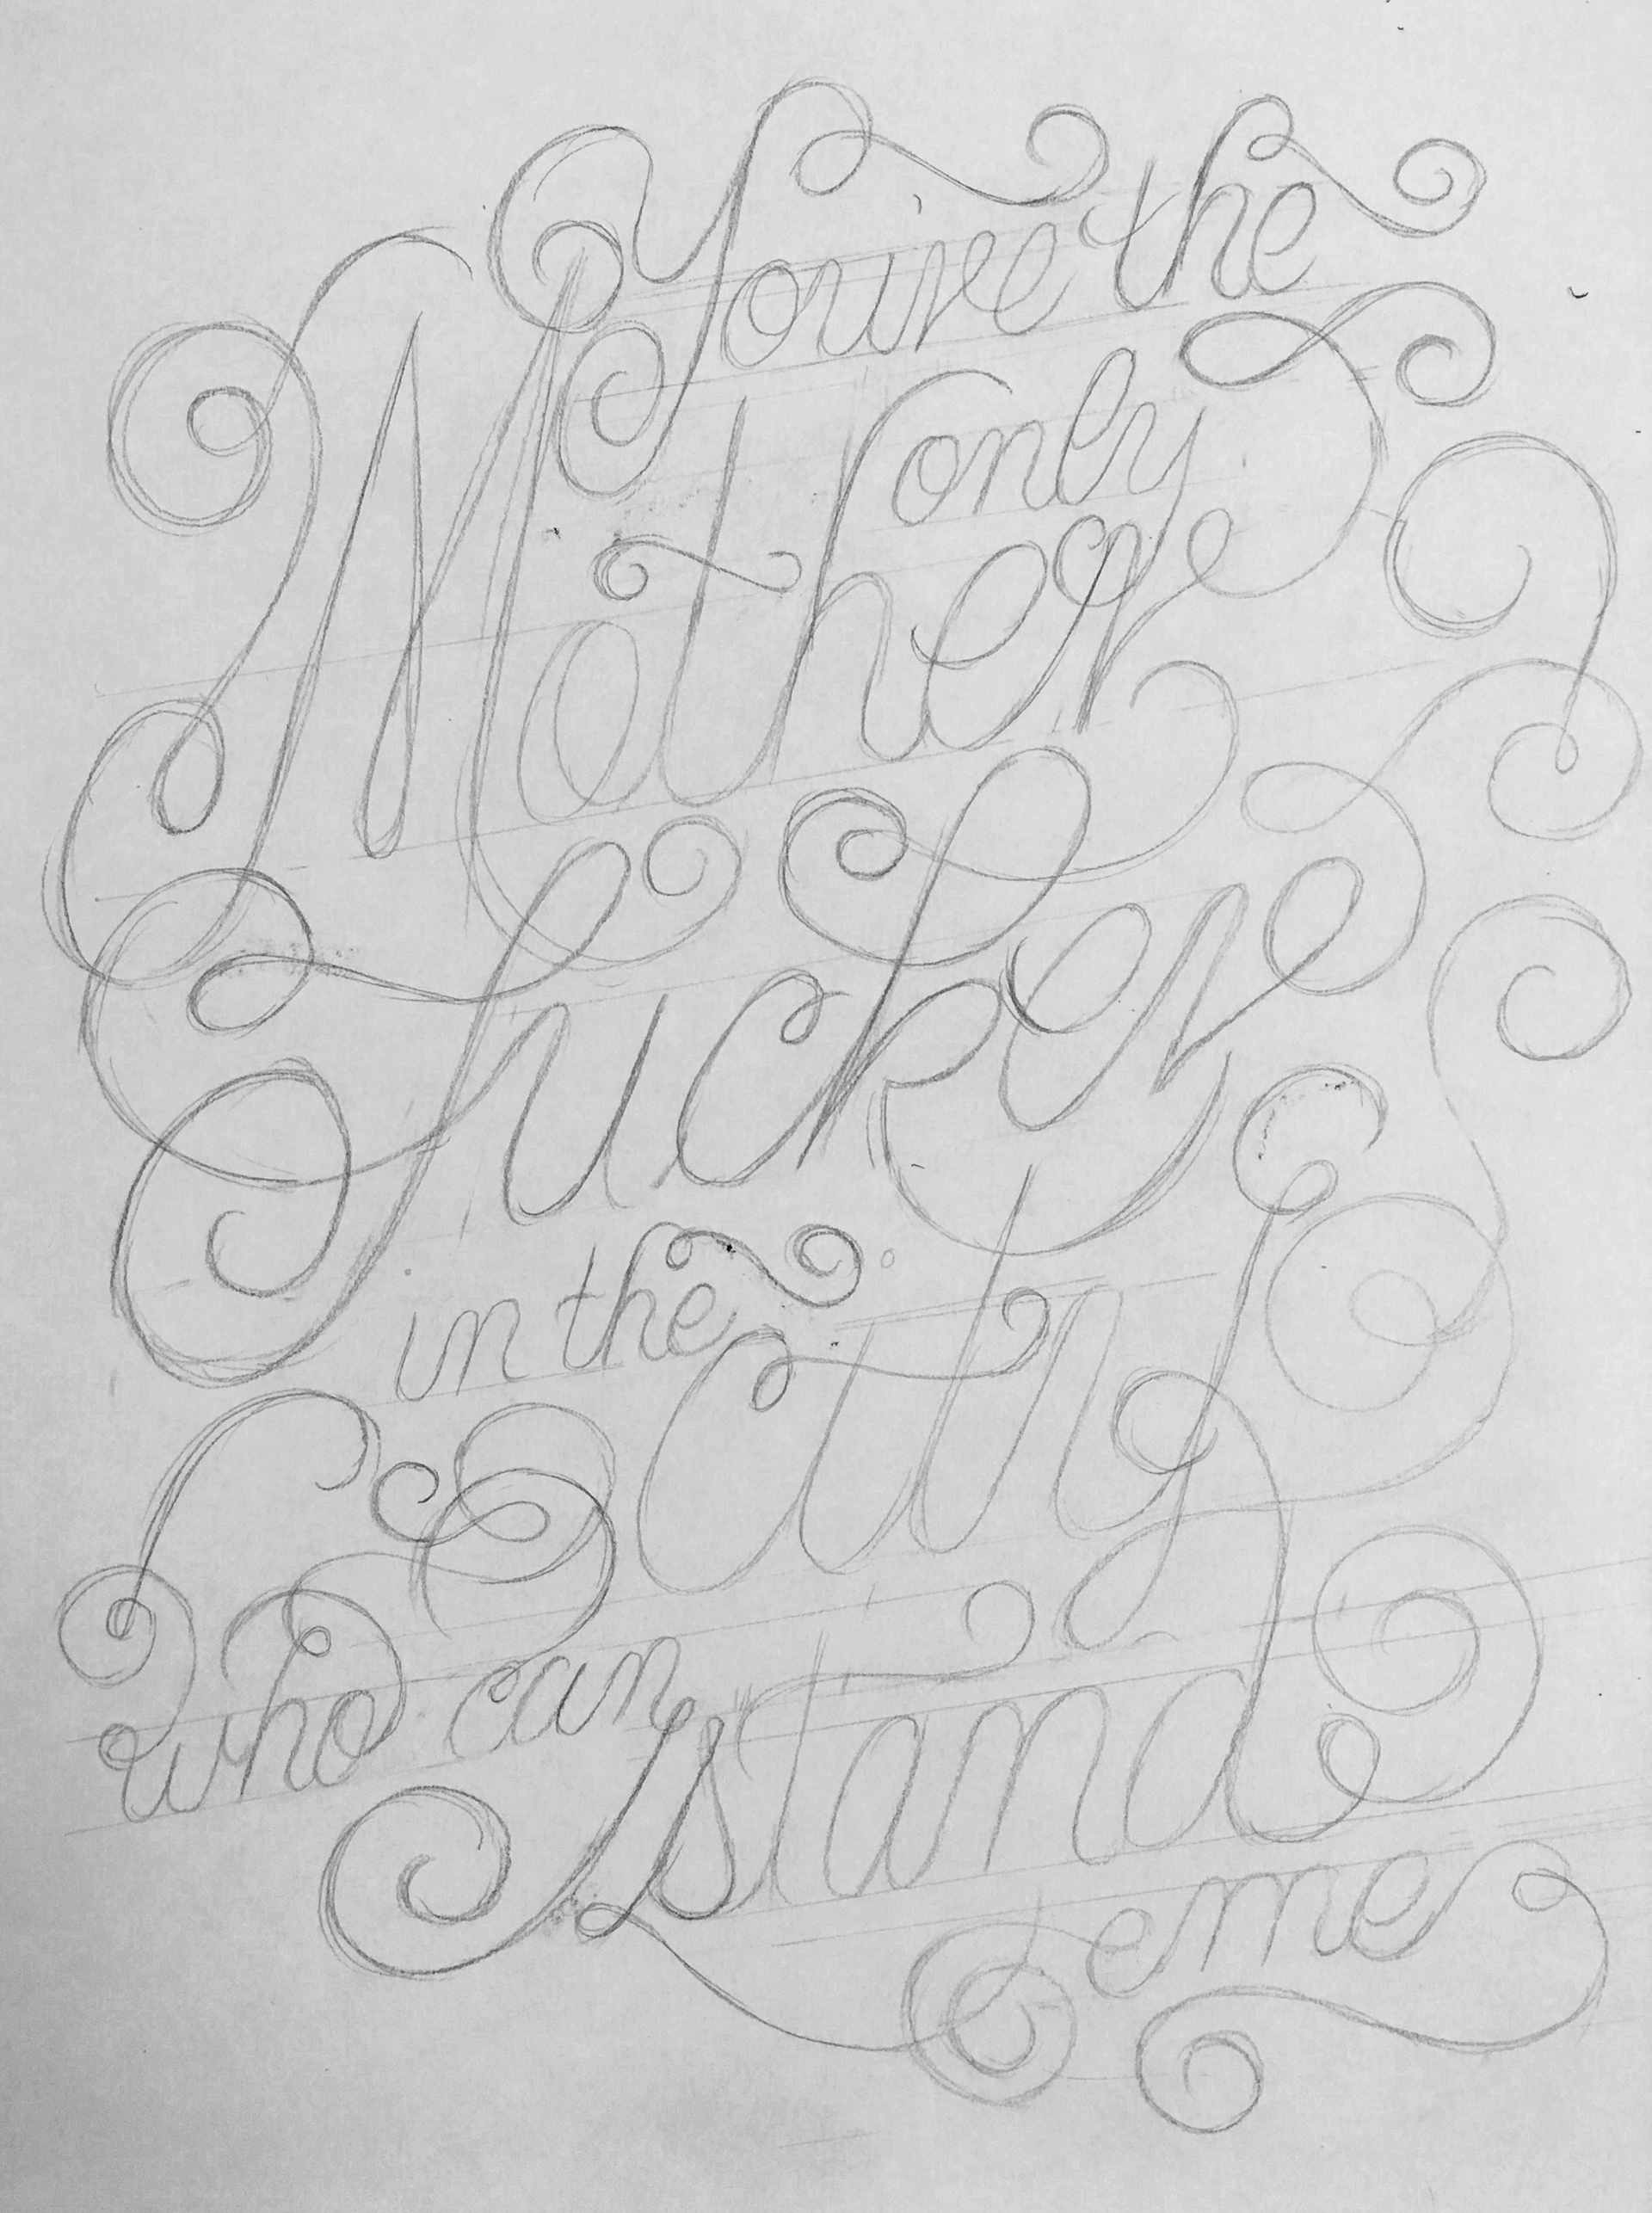 You're the
only
Mother
fucker
in the
city
who can
stand
me